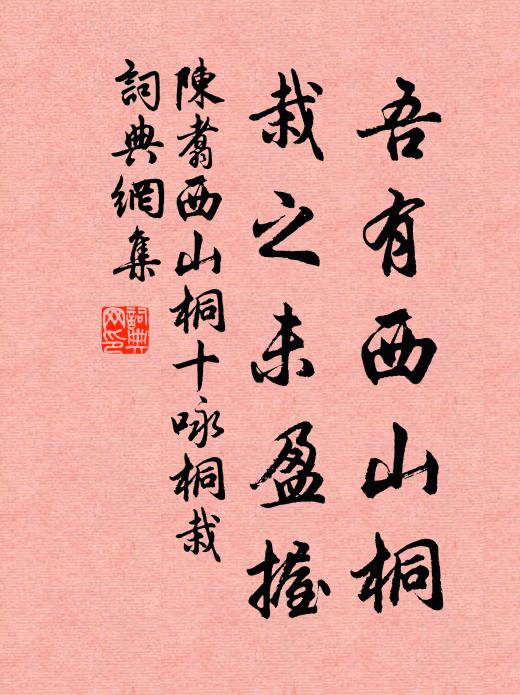 吾有西山桐
栽之未盈握
陳翥西山桐十咏桐栽
詞典網集
詞典
网印